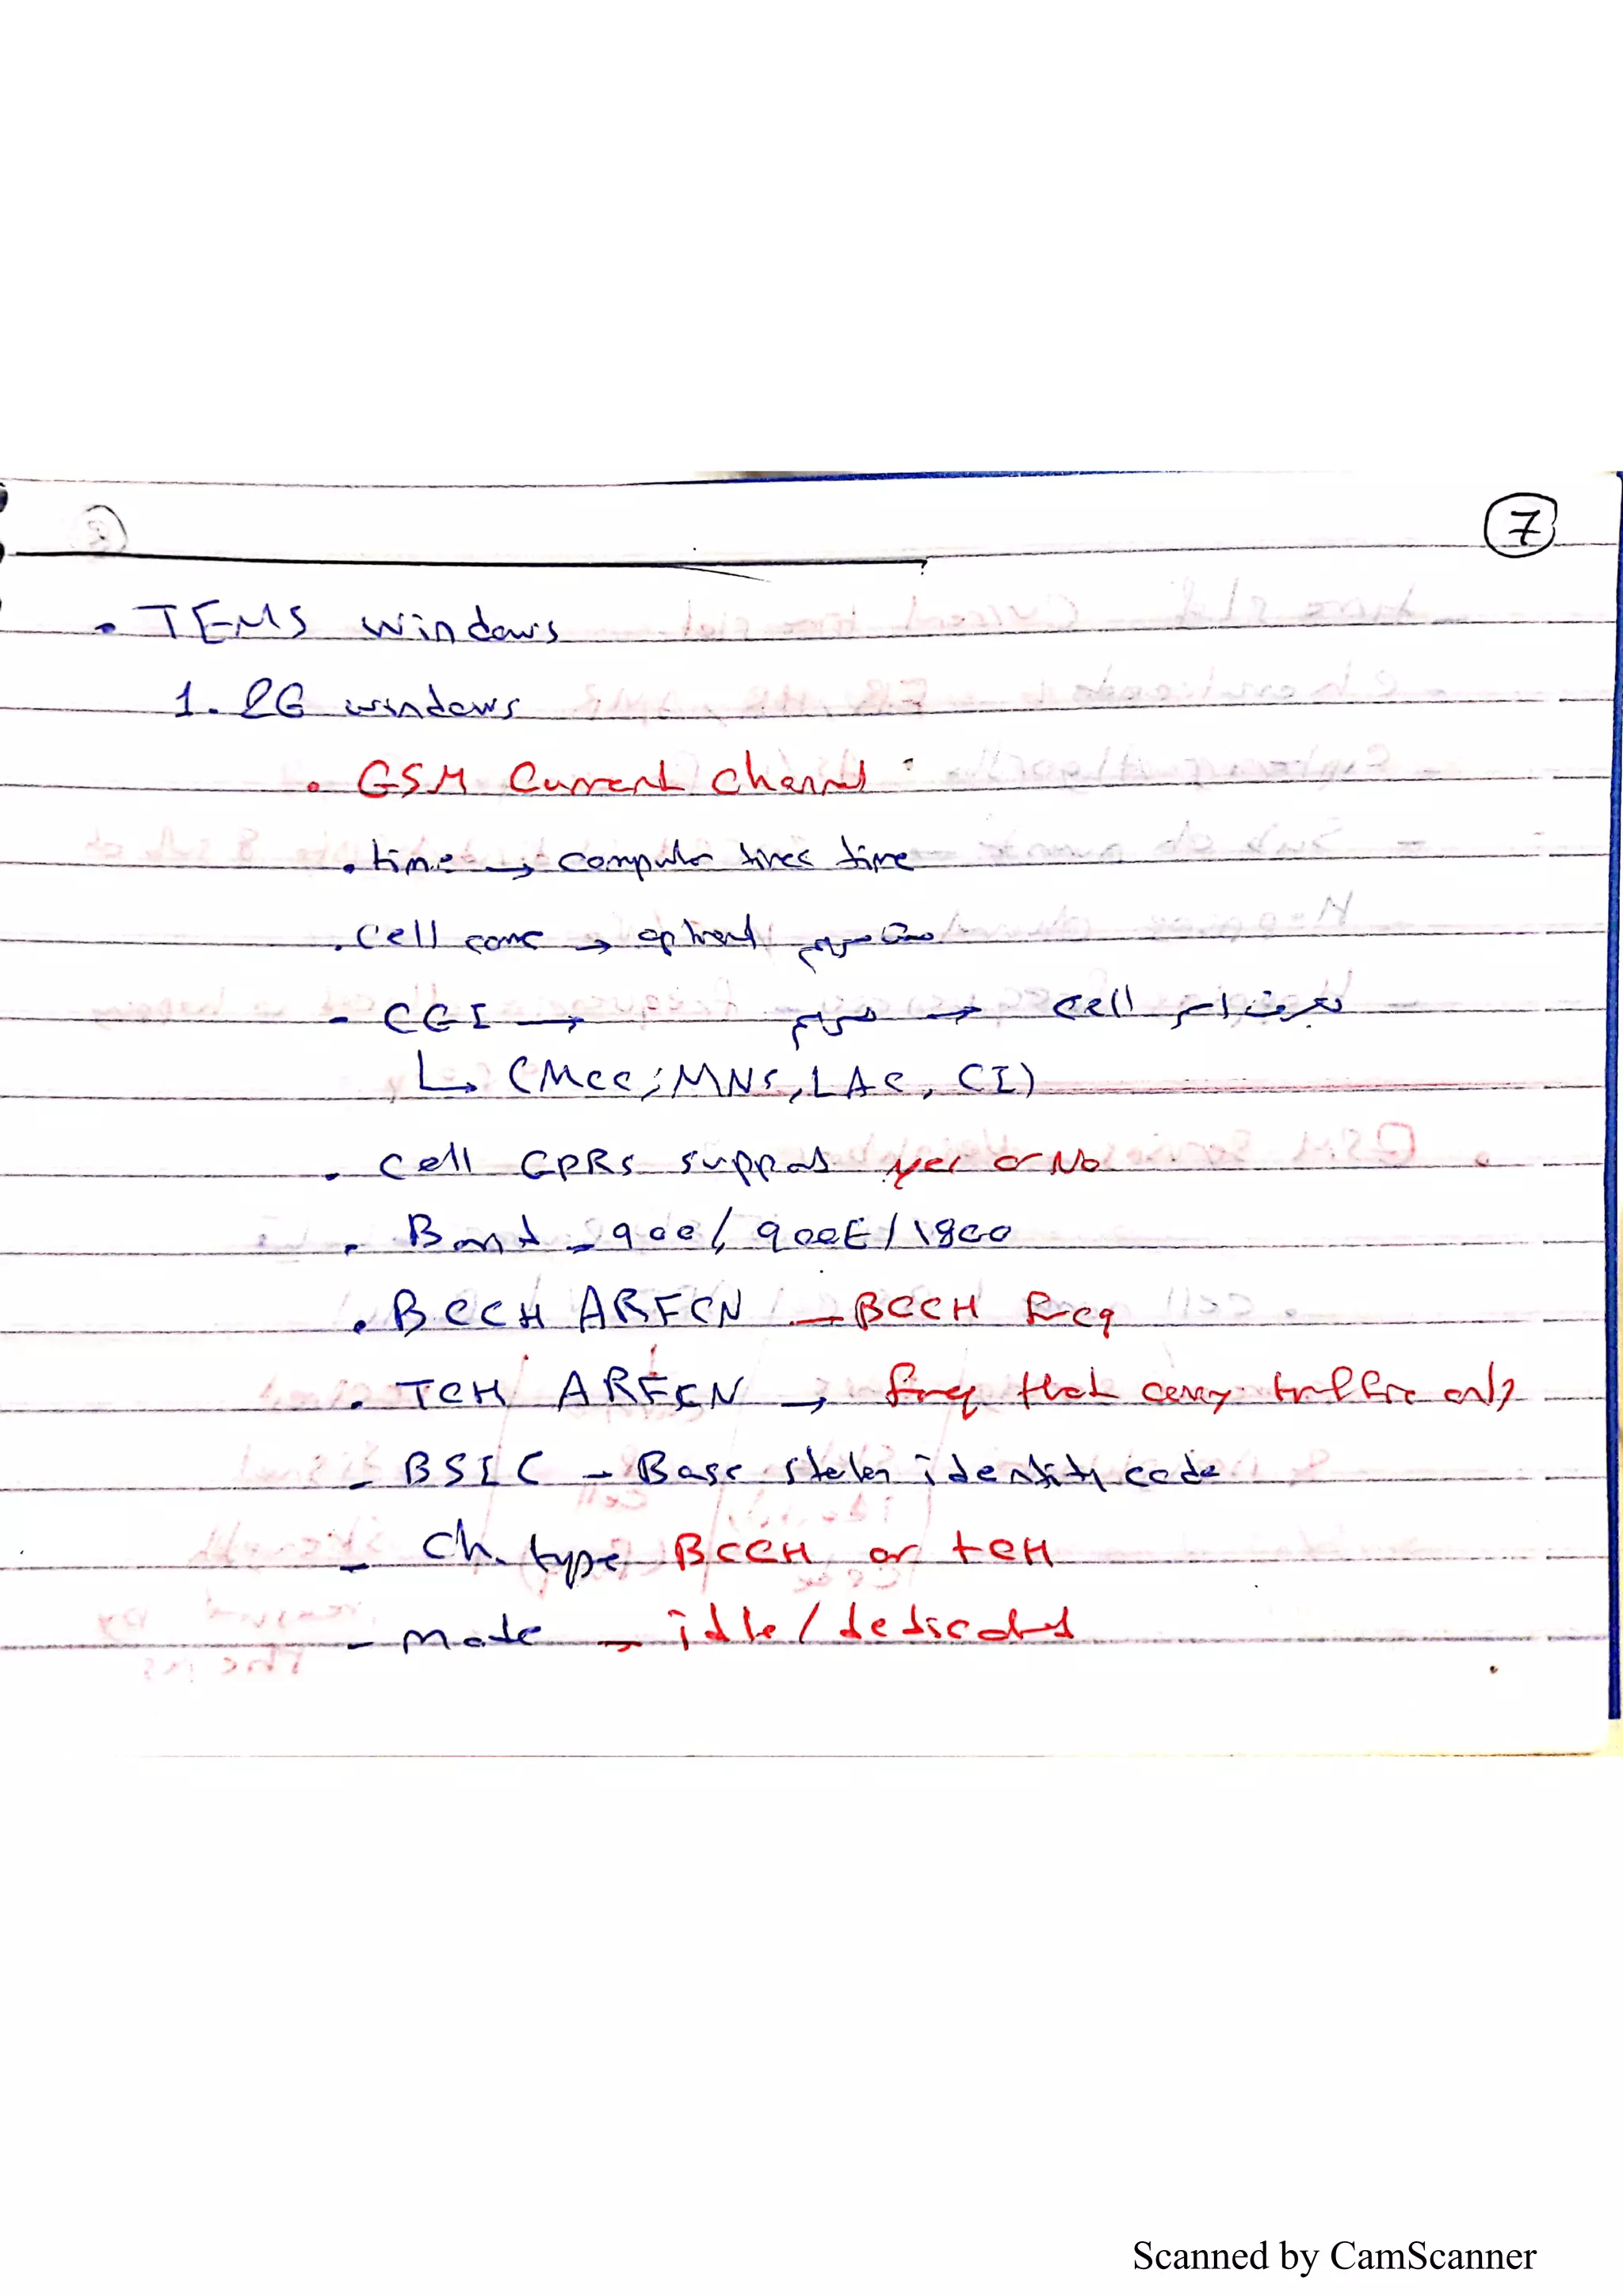 7
• TEMS windows
1. 2G windows
• GSM Current Channel :
• time → computer time
• Cell name → optional مش مهم
- CGI → مهم → cell تعرف اسم
↳ (MCC, MNC, LAC, CI)
• Cell GPRS support yes or No
• Band - 900 / 900E / 1800
• BCCH ARFCN - BCCH freq
• TCH ARFCN → freq that carry traffic only
- BSIC - Base station identity code
- ch. type BCCH or TCH
- mode - idle / dedicated
Scanned by CamScanner